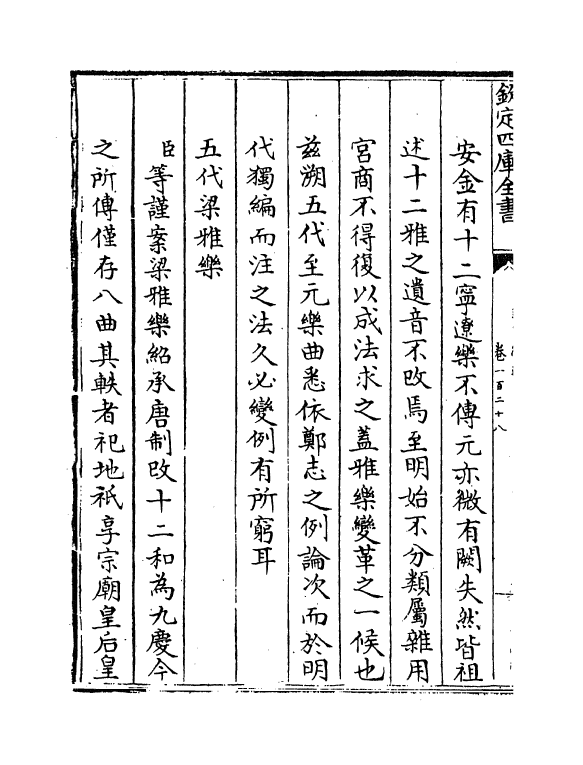 欽定四庫全書
卷一百二十八
安金有十二寜遼樂不傳元亦微有闕失然皆祖
述十二雅之遺音不改焉至明始不分類屬雜用
宮商不得復以成法求之蓋雅樂變革之一候也
兹朔五代至元樂曲悉依鄭志之例論次而於明
代獨編而注之法久必變例有所窮耳
五代梁雅樂
臣等謹案梁雅樂紹承唐制改十二和為九慶今
之所傳僅存八曲其軼者祀地祇享宗廟皇后皇